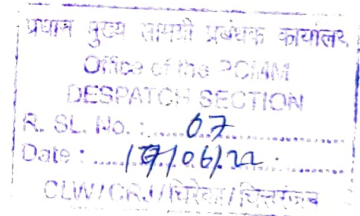 प्रधान मुख्य सामग्री प्रबंधक कार्यालय
Office of the PCMM
DESPATCH SECTION
R. SL. No. : ..... 07
Date : ..... 17/06/22
CLW/CRJ/चिरेका/चित्तरंजन